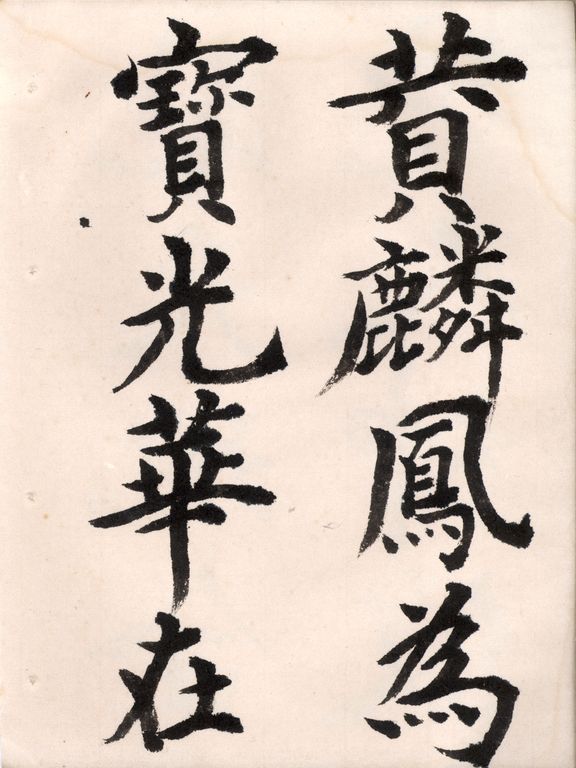 賁麟鳳為
寶光華在